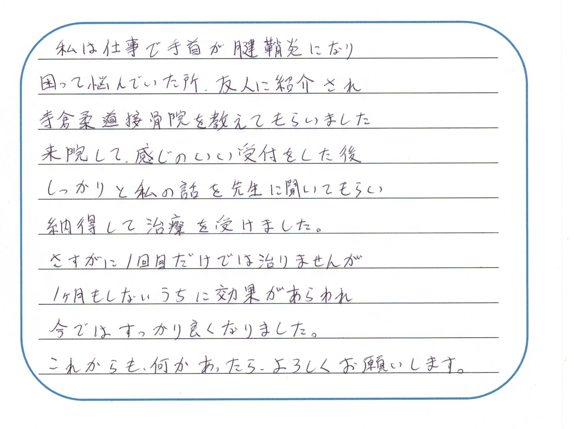 私は仕事で手首が腱鞘炎になり
困って悩んでいた所、友人に紹介され
寺倉柔道接骨院を教えてもらいました
来院して、感じのいい受付をした後
しっかりと私の話を先生に聞いてもらい
納得して治療を受けました。
さすがに1回目だけでは治りませんが
1ヶ月もしないうちに効果があらわれ
今ではすっかり良くなりました。
これからも、何かあったら、よろしくお願いします。